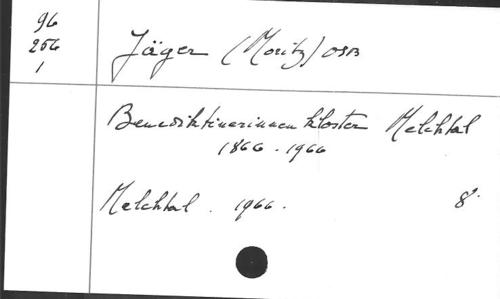 96
256
1
Jäger (Moritz) OSB
Benediktinerinnenkloster Melchtal
1866 - 1966
Melchtal . 1966 .
8°